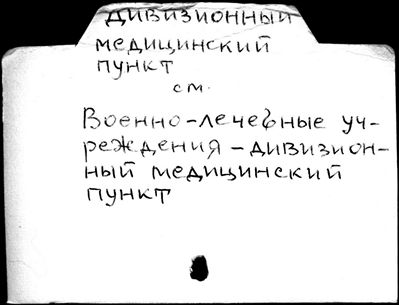 Дивизионный
медицинский
пункт
см.
Военно-лечебные уч-
реждения – дивизион-
ный медицинский
пункт